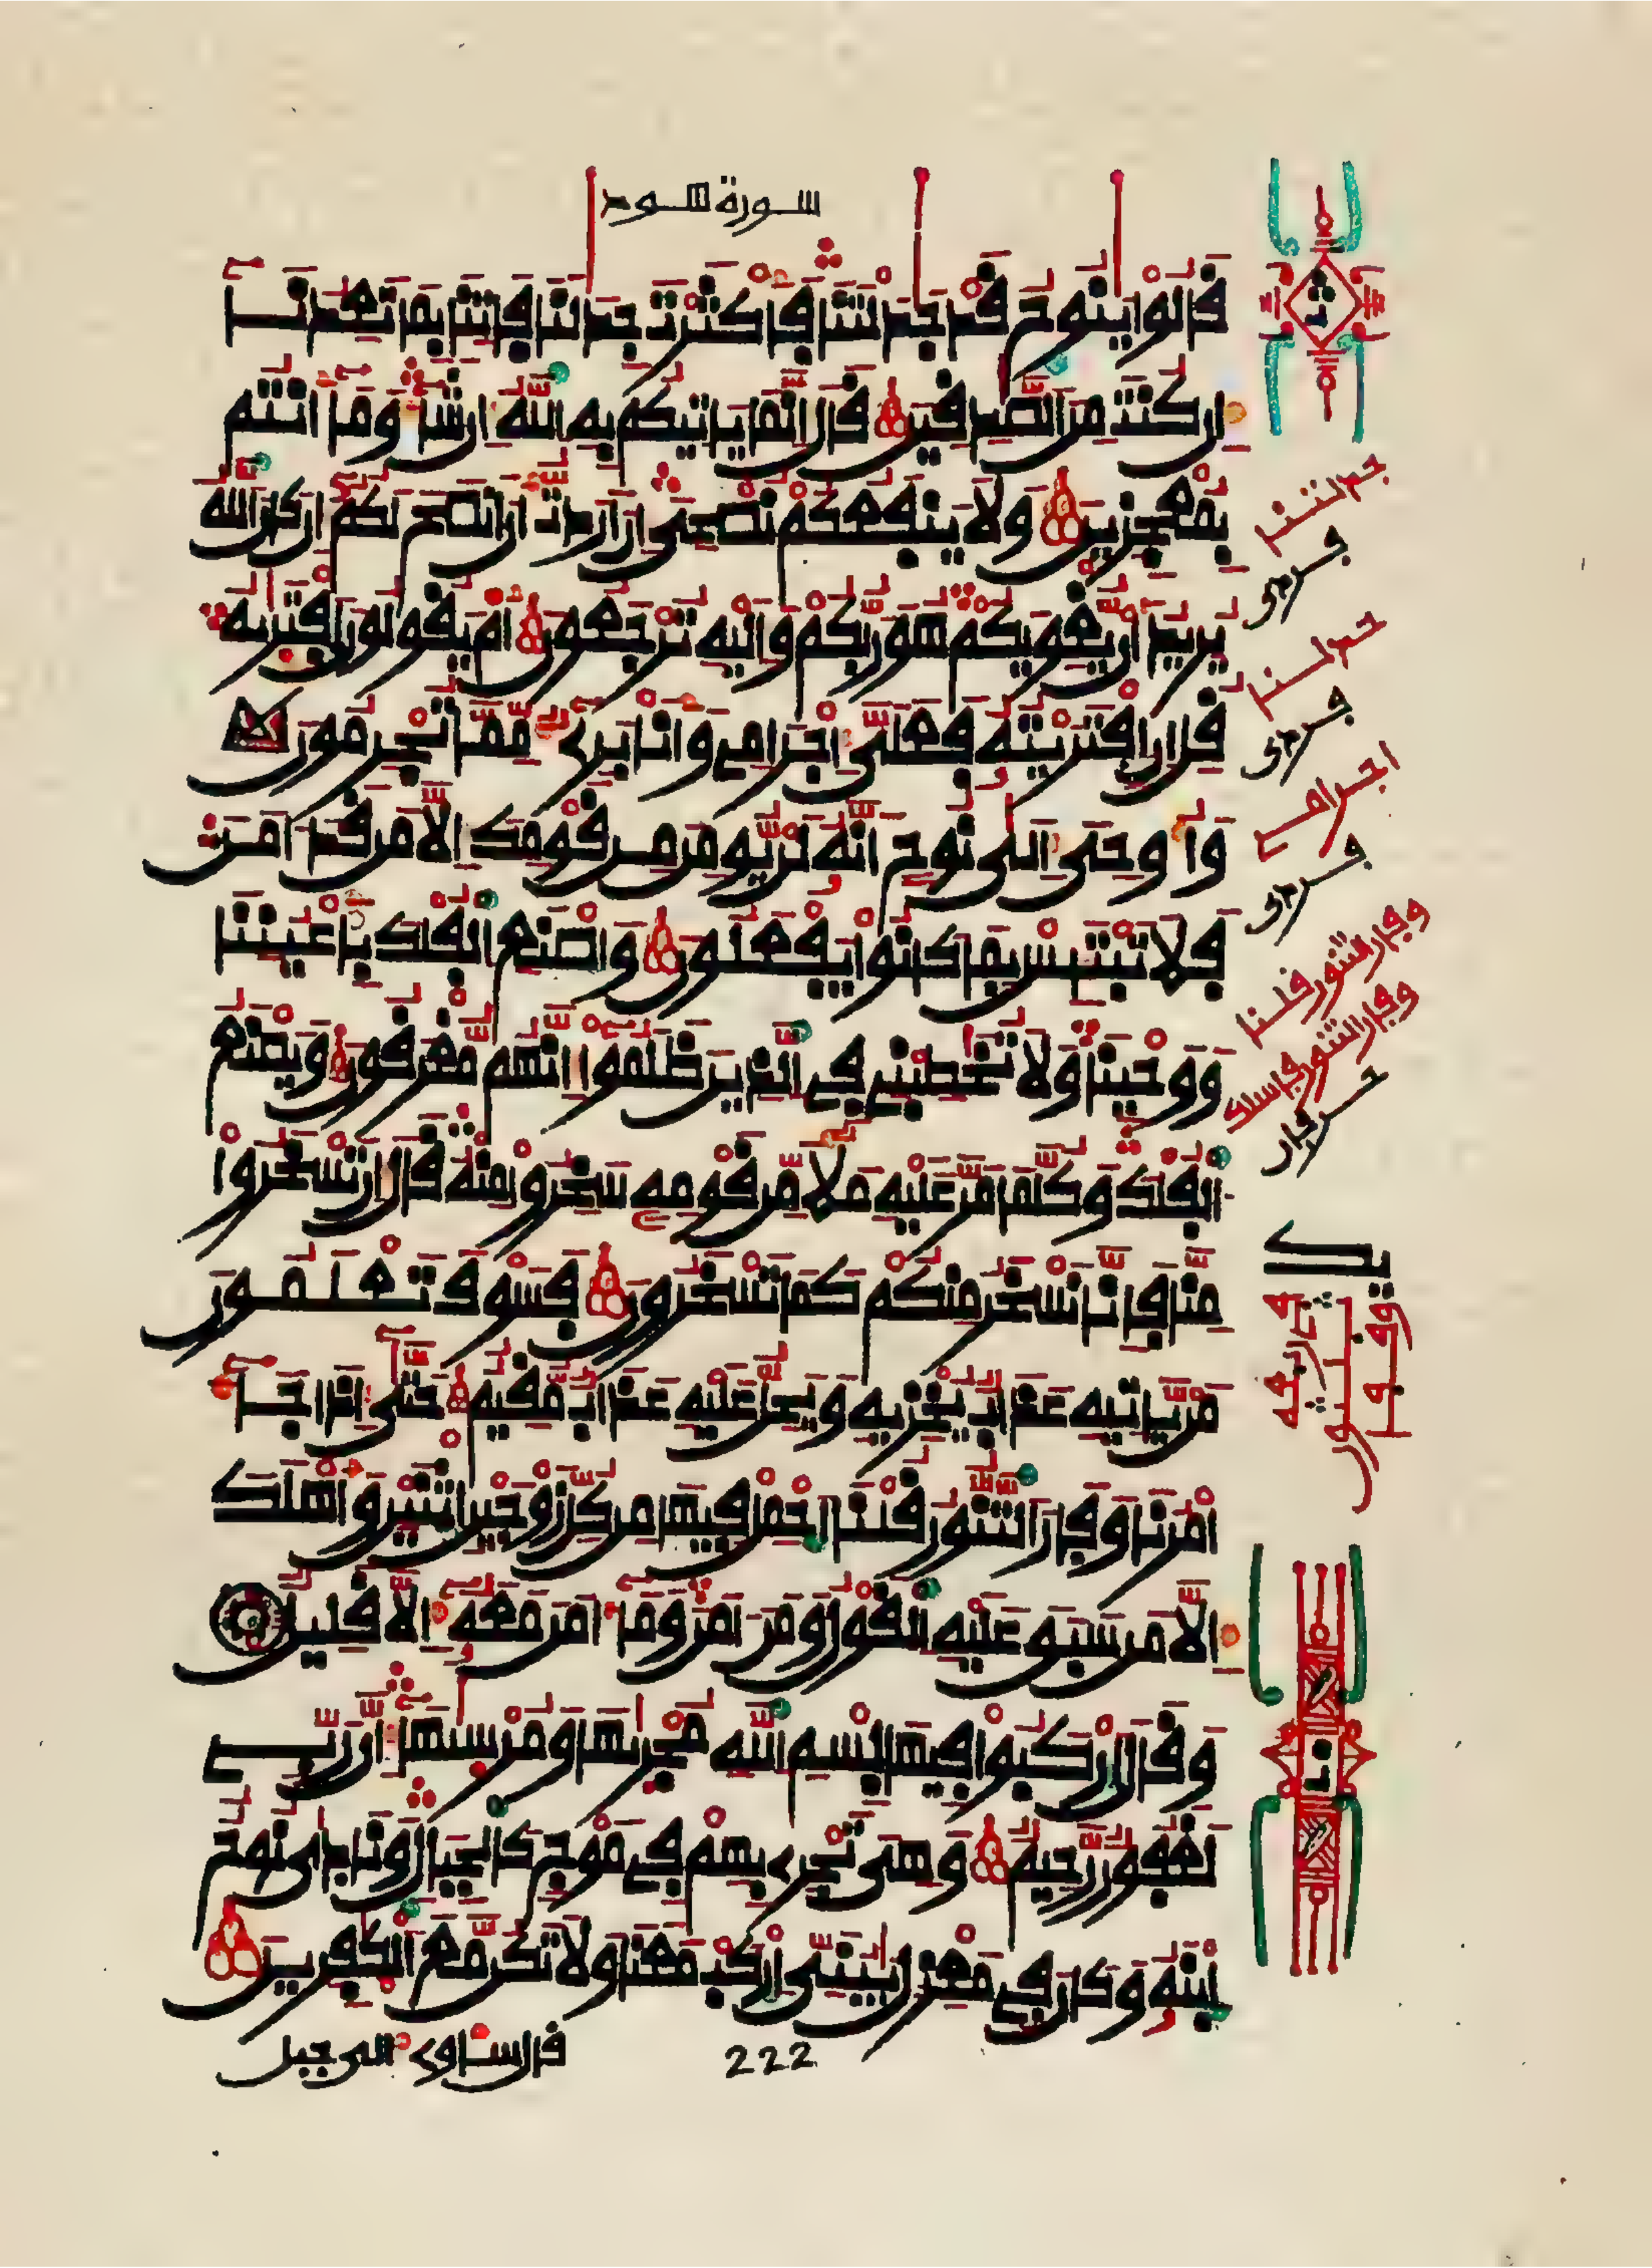 سورة هود
قَالُواْ يَٰنُوحُ قَدْ جَٰدَلْتَنَا فَأَكْثَرْتَ جِدَٰلَنَا فَأْتِنَا بِمَا تَعِدُنَا
إِن كُنتَ مِنَ ٱلصَّٰدِقِينَ قَالَ إِنَّمَا يَأْتِيكُم بِهِ ٱللَّهُ إِن شَآءَ وَمَآ أَنتُم
بِمُعْجِزِينَ وَلَا يَنفَعُكُمْ نُصْحِيَ إِنْ أَرَدتُّ أَنْ أَنصَحَ لَكُمْ إِن كَانَ ٱللَّهُ
يُرِيدُ أَن يُغْوِيَكُمْ هُوَ رَبُّكُمْ وَإِلَيْهِ تُرْجَعُونَ أَمْ يَقُولُونَ ٱفْتَرَىٰهُ
قُلْ إِنِ ٱفْتَرَيْتُهُ فَعَلَيَّ إِجْرَامِي وَأَنَا بَرِيٓءٌ مِّمَّا تُجْرِمُونَ
وَأُوحِيَ إِلَىٰ نُوحٍ أَنَّهُ لَن يُؤْمِنَ مِن قَوْمِكَ إِلَّا مَن قَدْ ءَامَنَ
فَلَا تَبْتَئِسْ بِمَا كَانُواْ يَفْعَلُونَ وَٱصْنَعِ ٱلْفُلْكَ بِأَعْيُنِنَا
وَوَحْيِنَا وَلَا تُخَٰطِبْنِي فِي ٱلَّذِينَ ظَلَمُوٓاْ إِنَّهُم مُّغْرَقُونَ وَيَصْنَعُ
ٱلْفُلْكَ وَكُلَّمَا مَرَّ عَلَيْهِ مَلَأٌ مِّن قَوْمِهِ سَخِرُواْ مِنْهُ قَالَ إِن تَسْخَرُواْ
مِنَّا فَإِنَّا نَسْخَرُ مِنكُمْ كَمَا تَسْخَرُونَ فَسَوْفَ تَعْلَمُونَ
مَن يَأْتِيهِ عَذَابٌ يُخْزِيهِ وَيَحِلُّ عَلَيْهِ عَذَابٌ مُّقِيمٌ حَتَّىٰٓ إِذَا جَآءَ
أَمْرُنَا وَفَارَ ٱلتَّنُّورُ قُلْنَا ٱحْمِلْ فِيهَا مِن كُلِّ زَوْجَيْنِ ٱثْنَيْنِ وَأَهْلَكَ
إِلَّا مَن سَبَقَ عَلَيْهِ ٱلْقَوْلُ وَمَنْ ءَامَنَ وَمَآ ءَامَنَ مَعَهُۥٓ إِلَّا قَلِيلٌ
وَقَالَ ٱرْكَبُواْ فِيهَا بِسْمِ ٱللَّهِ مُجْر۪ىٰهَا وَمُرْسَىٰهَآ إِنَّ رَبِّي
لَغَفُورٌ رَّحِيمٌ وَهِيَ تَجْرِي بِهِمْ فِي مَوْجٍ كَٱلْجِبَالِ وَنَادَىٰ نُوحٌ
ٱبْنَهُ وَكَانَ فِي مَعْزِلٍ يَٰبُنَيِّ ٱرْكَب مَّعَنَا وَلَا تَكُن مَّعَ ٱلْكَٰفِرِينَ
قال سـاوي إلى جبل
222
جدلتنا
جدلنا
اجرامي
وفار التنور قلنا
وفار التنور فاسلك